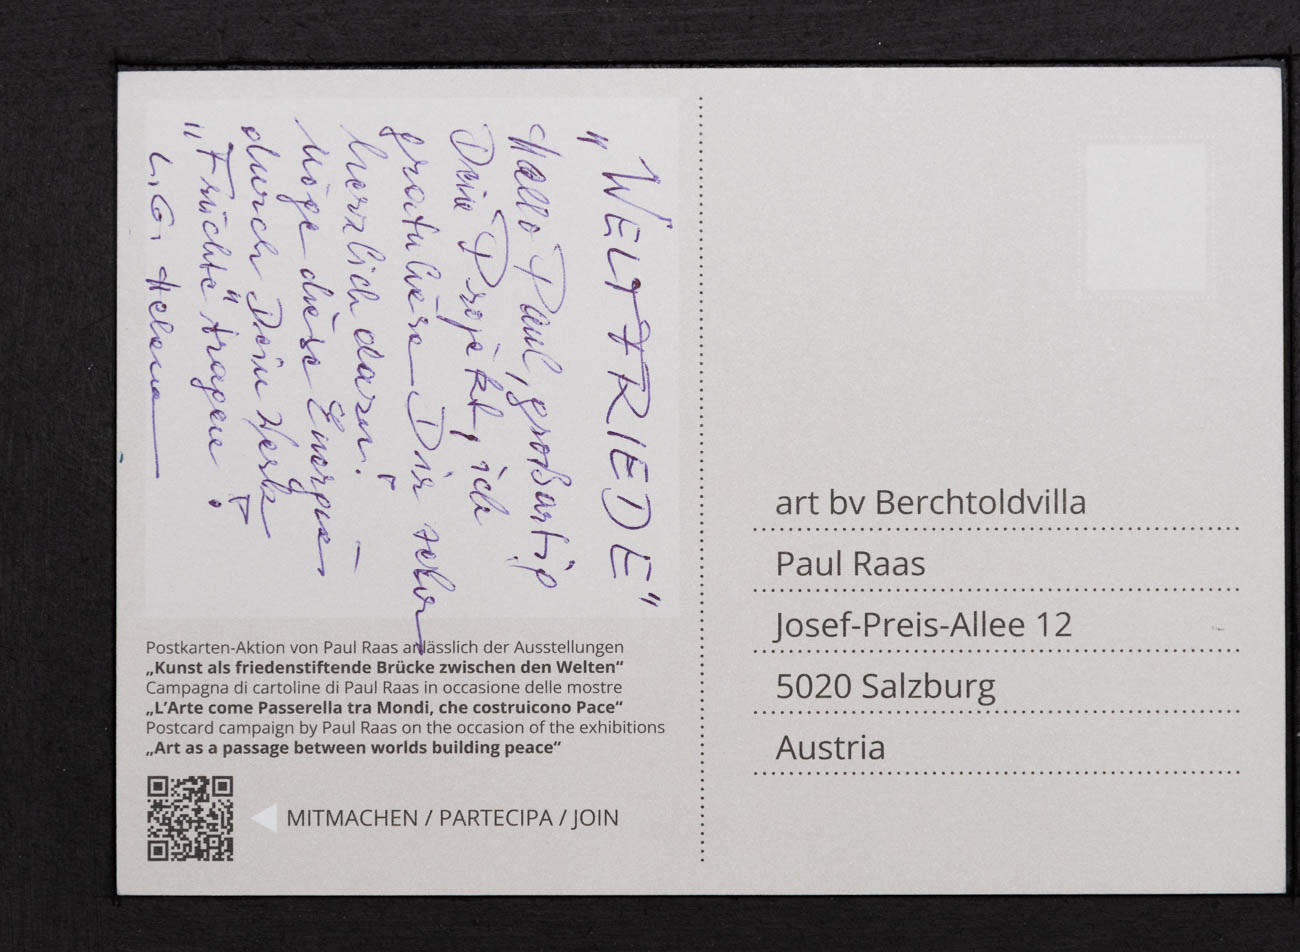 „WELTFRIEDE"
Hallo Paul, großartig
Dein Projekt, ich
gratuliere Dir sehr
herzlich dazu!
Möge diese Energie –
durch Dein Werk
„Früchte" tragen!
L.G. Helena
Postkarten-Aktion von Paul Raas anlässlich der Ausstellungen
„Kunst als friedenstiftende Brücke zwischen den Welten“
Campagna di cartoline di Paul Raas in occasione delle mostre
„L’Arte come Passerella tra Mondi, che costruicono Pace“
Postcard campaign by Paul Raas on the occasion of the exhibitions
„Art as a passage between worlds building peace“
MITMACHEN / PARTECIPA / JOIN
art bv Berchtoldvilla
Paul Raas
Josef-Preis-Allee 12
5020 Salzburg
Austria